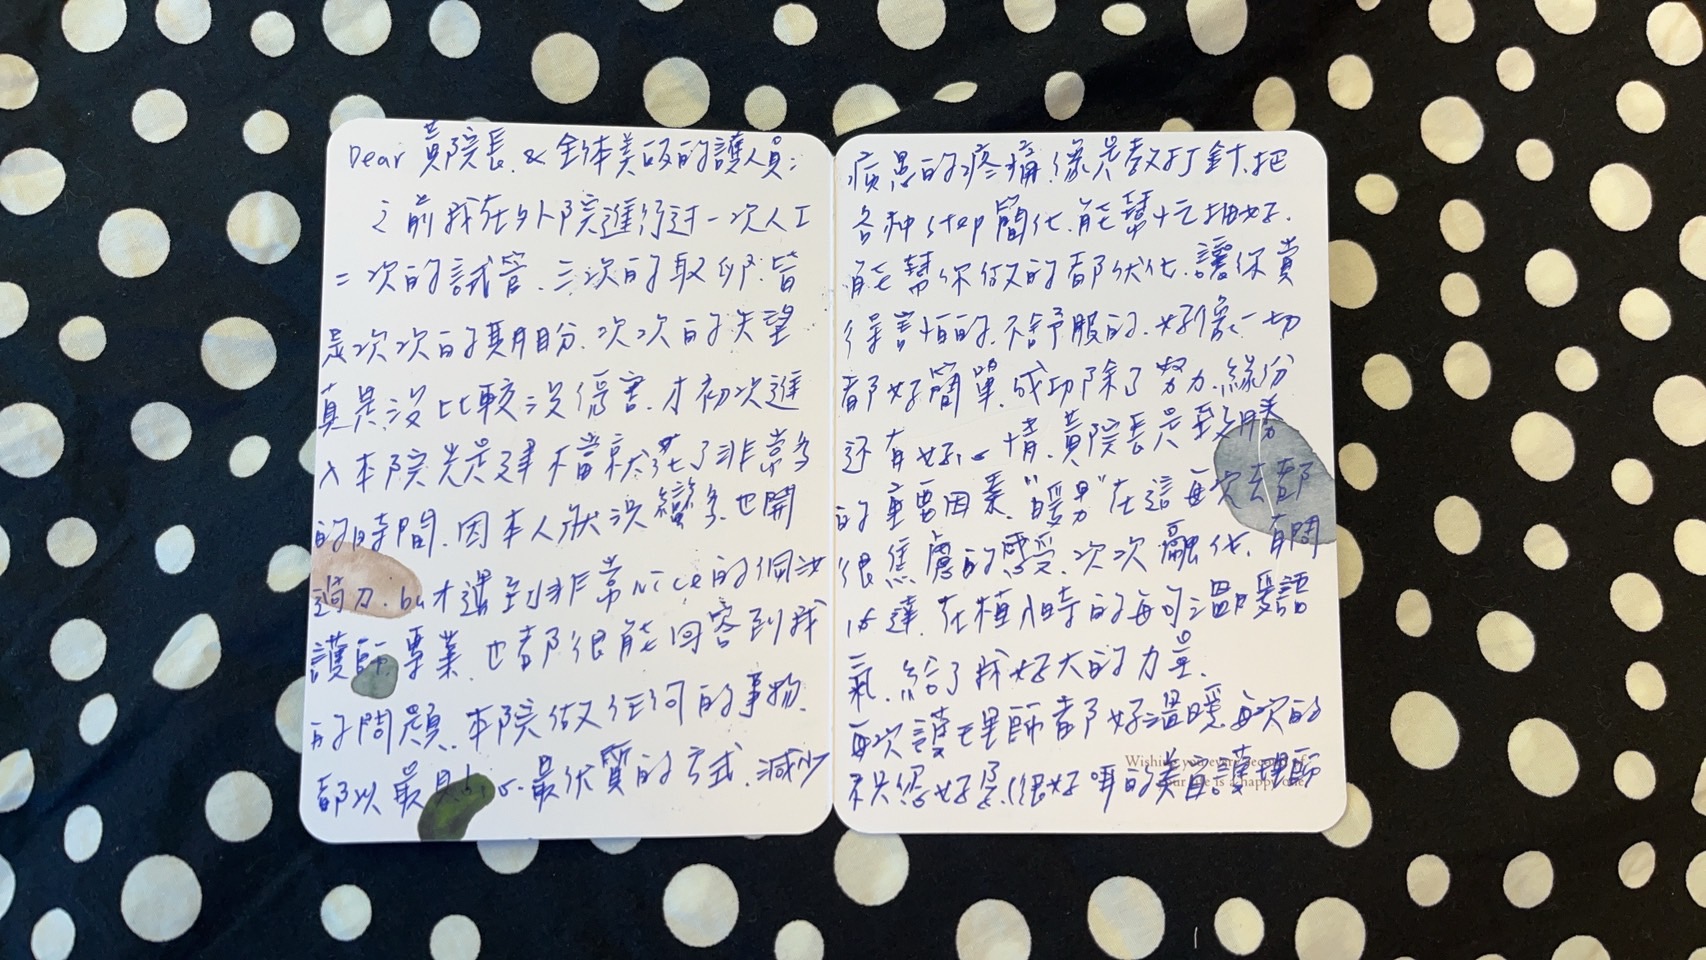 Dear 黃院長 & 全体美女的護人員:
之前我在外院進行过一次人工
二次的試管、三次的取卵、皆
是次次的期盼、次次的失望
真是沒比較沒傷害、才初次進
入本院光是建檔就花了非常多
的時間、因本人狀況蠻多、也開
過刀、but 遇到非常nice的個
護師、專業、也都很能回答到我
的問題、本院做任何的事物、
都以最貼心、最优質的方式、減少
病患的疼痛、像是教打針、把
各种step簡化、能幫忙抽好、
能幫你做的都优化、讓你覺
得害怕的、不舒服的、好像一切
都好簡單、成功除了努力、緣份
还有好心情、黃院長是致勝
的重要因素、"暖男"在這每次去都
很焦慮的感受、次次融化、有問
必達、在植入時的每句溫暖語
氣、給了我好大的力量、
每次護理師都好溫暖、每次的
很好 的美 護理師
Wishing you every